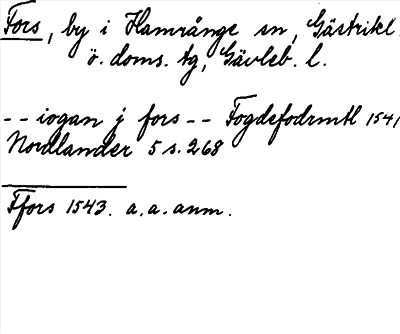 Fors, by i Hamrånge sn, Gästrikl.
ö. doms. tg, Gävleb. l.
-- iogan j fors -- Fogdefodrmtl 1541
Nordlander 5 s. 268
Ffors 1543. a. a. anm.